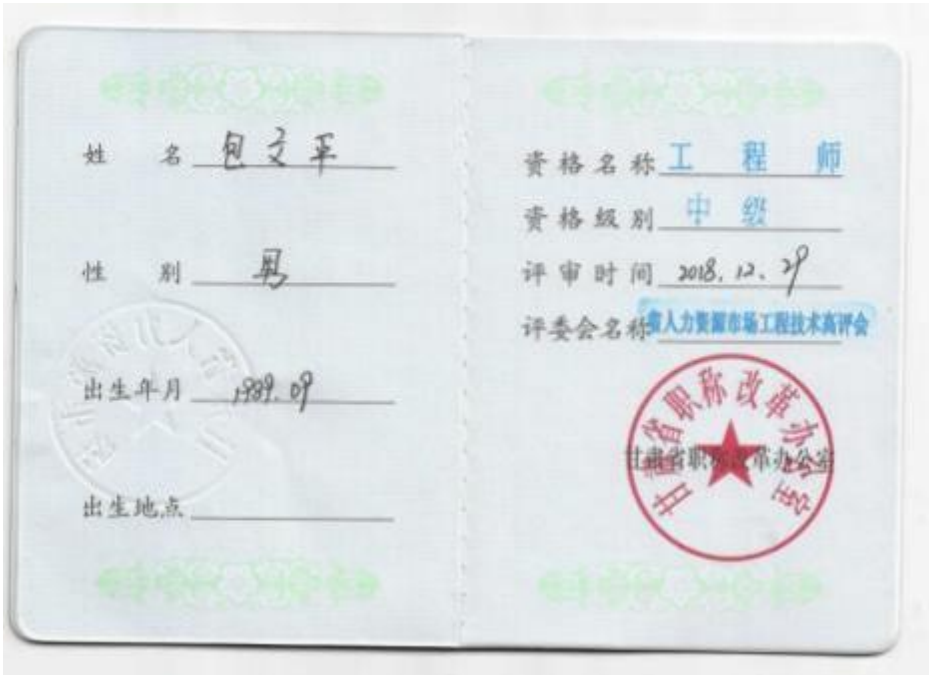 姓 名 包文平
性 别 男
出生年月 1989.09
出生地点
资格名称 工 程 师
资格级别 中 级
评审时间 2018.12.29
评委会名称 省人力资源市场工程技术高评会
甘肃省职称改革办公室
甘肃省职称改革办公室